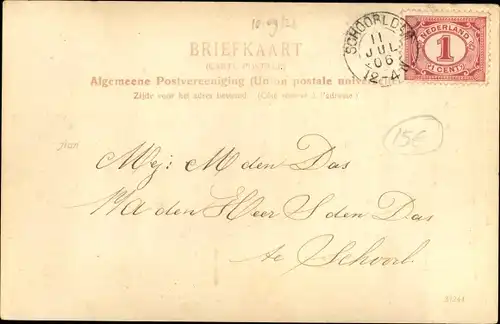 10.09/21
BRIEFKAART
(CARTE POSTALE)
Algemeene Postvereeniging (Union postale universelle)
Zijde voor het adres bestemd. (Côté réservé à l'adresse)
SCHOORLDAM
11
JUL
06
12-4
NEDERLAND
1
CENT
15€
Mej: M den Das
P/A den Heer S den Das
te Schoorl.